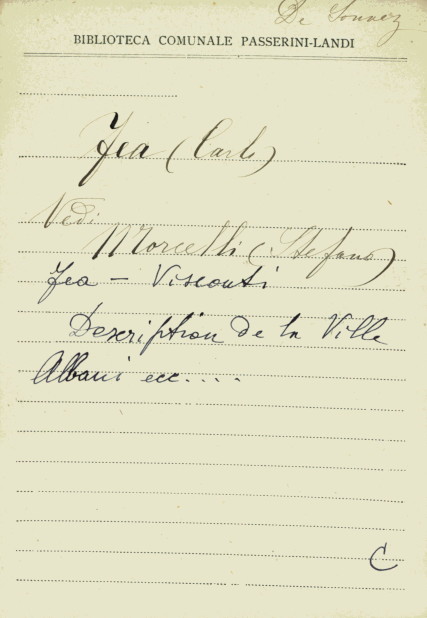 De
BIBLIOTECA COMUNALE PASSERINI-LANDI
Fea (Carlo)
Vedi
Morcelli (Stefano)
Fea - Visconti
Description de la Ville
Albani ecc....
C